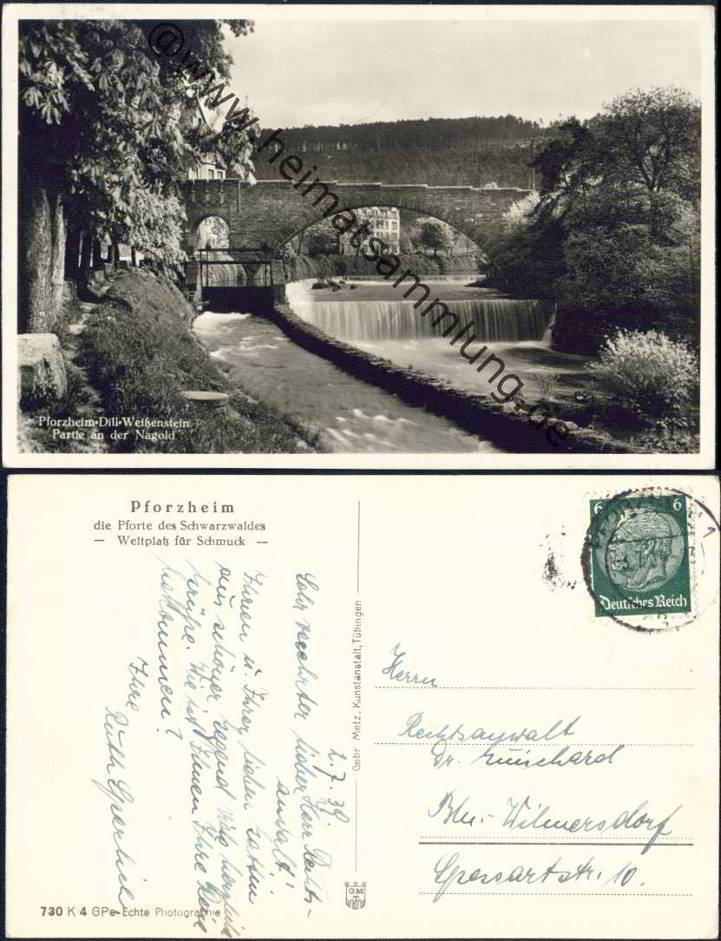 @www.heimatsammlung.de
Pforzheim-Dill-Weißenstein
Partie an der Nagold
Pforzheim
die Pforte des Schwarzwaldes
— Weltplatz für Schmuck —
2.7.39.
Sehr verehrter lieber Herr Rechts-
anwalt!
Ihnen u. Ihrer lieben Gattin
aus schöner Gegend viele herzliche
Grüße. Wie ist Ihnen Ihre Reise
bekommen?
Ihre
Ruth
Gebr. Metz, Kunstanstalt, Tübingen
6 6
Deutsches Reich
Herrn
Rechtsanwalt
Dr.
Bln.-Wilmersdorf
Spessartstr. 10.
GM
730 K 4 GPe-Echte Photographie